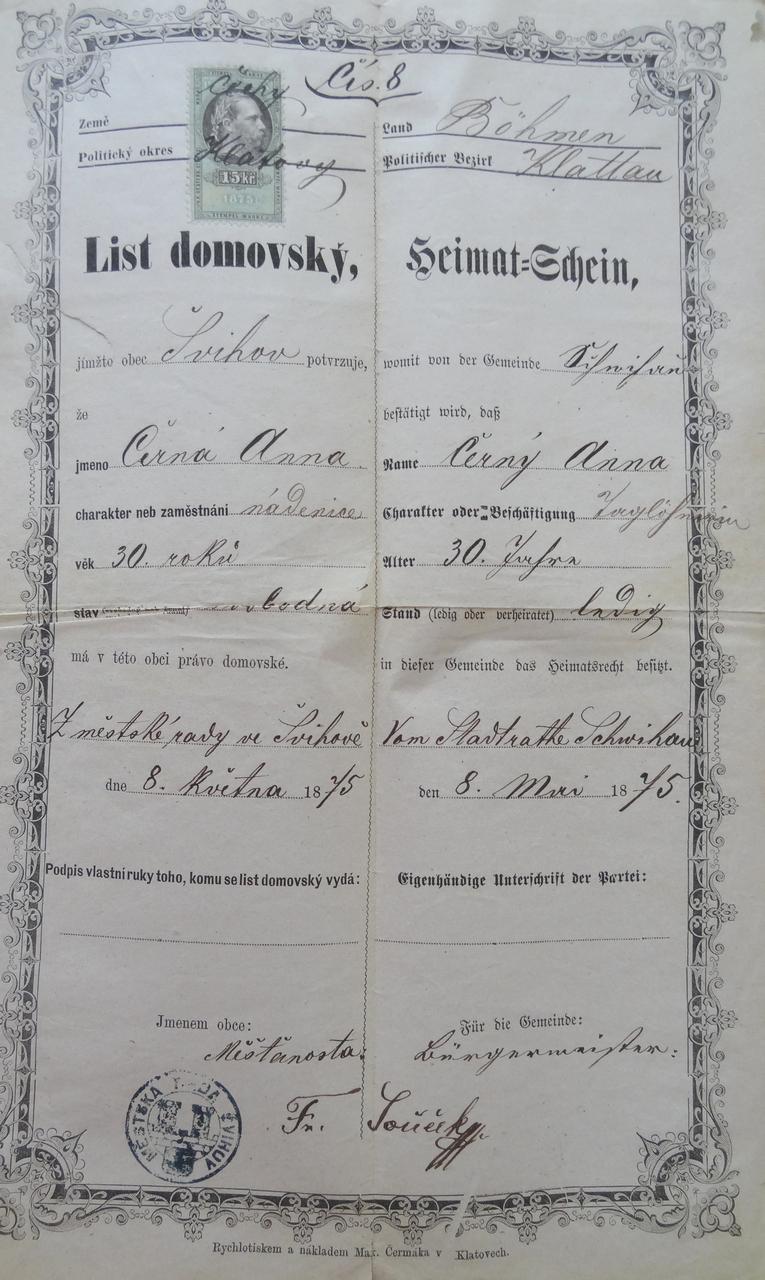 Čís. 8
Země Čechy
Politický okres Klatovy
15 Kr
1875
STEMPEL MARKE
List domovský,
jímžto obec Švihov potvrzuje,
že
jmeno Černá Anna
charakter neb zaměstnání nádenice
věk 30. roků
stav svobodná
má v této obci právo domovské.
Z městské rady ve Švihově
dne 8. května 1875
Podpis vlastní ruky toho, komu se list domovský vydá:
Jmenem obce:
Měšťanosta:
MĚSTSKÁ RADA ŠVIHOV
Land Böhmen
Politischer Bezirk Klattau
Heimat=Schein,
womit von der Gemeinde Schwihau
bestätigt wird, daß
Name Černý Anna
Charakter oder Beschäftigung Taglöhnerin
Alter 30. Jahre
Stand (ledig oder verheiratet) ledig
in dieser Gemeinde das Heimatsrecht besitzt.
Vom Stadtrathe Schwihau
den 8. Mai 1875.
Eigenhändige Unterschrift der Partei:
Für die Gemeinde:
Bürgermeister:
Fr. Souček
Rychlotiskem a nákladem Max. Čermáka v Klatovech.